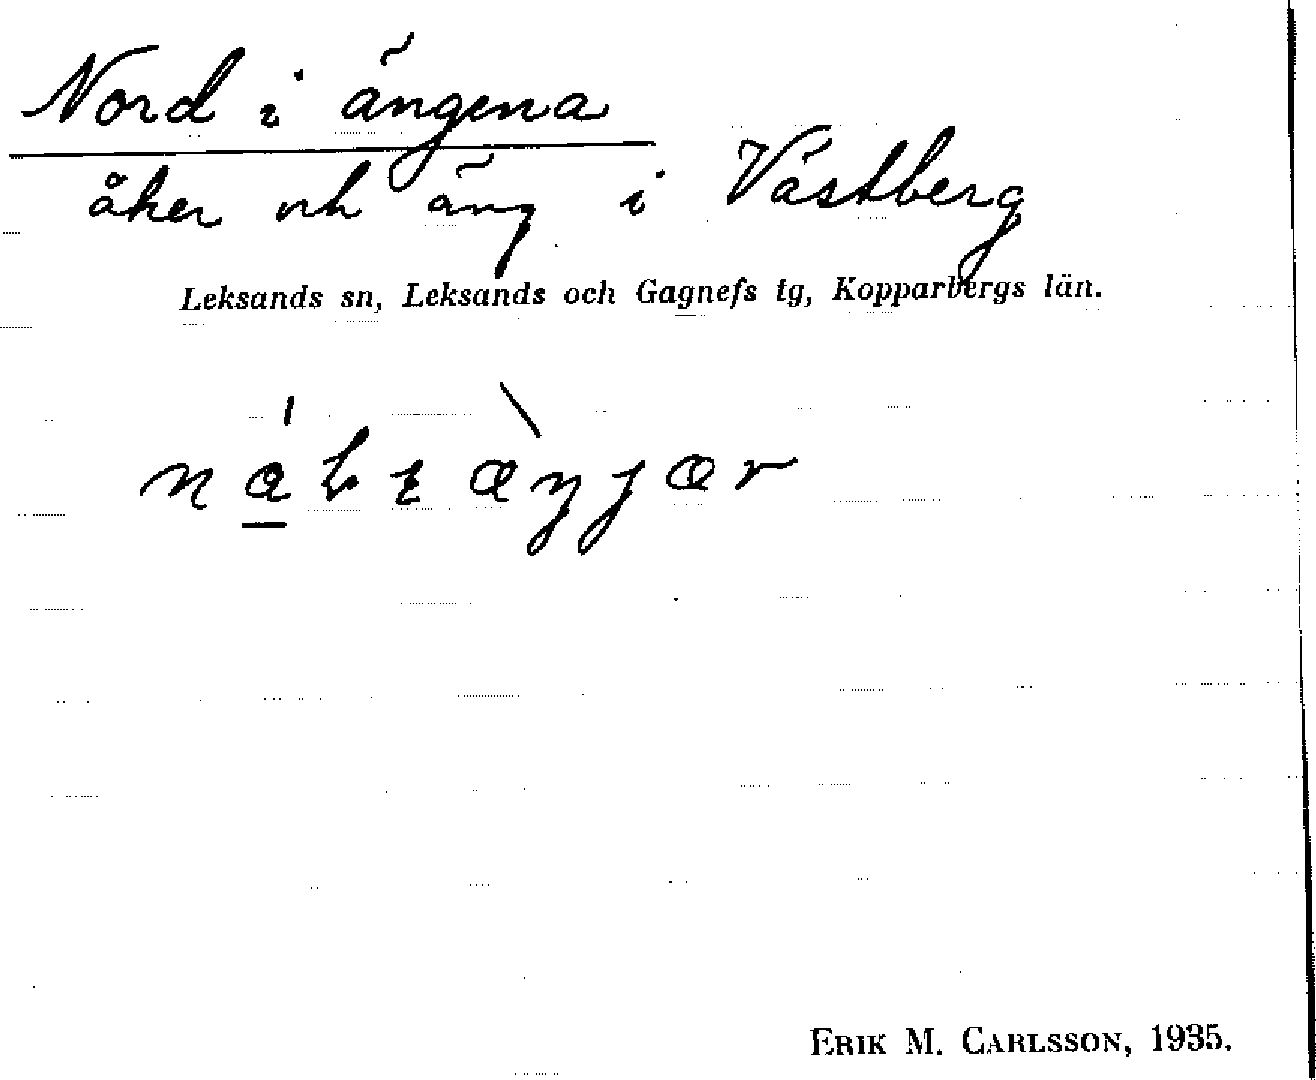 Nord i ängena
åker och äng i Västberg
Leksands sn, Leksands och Gagnefs tg, Kopparbergs län.
ERIK M. CARLSSON, 1935.